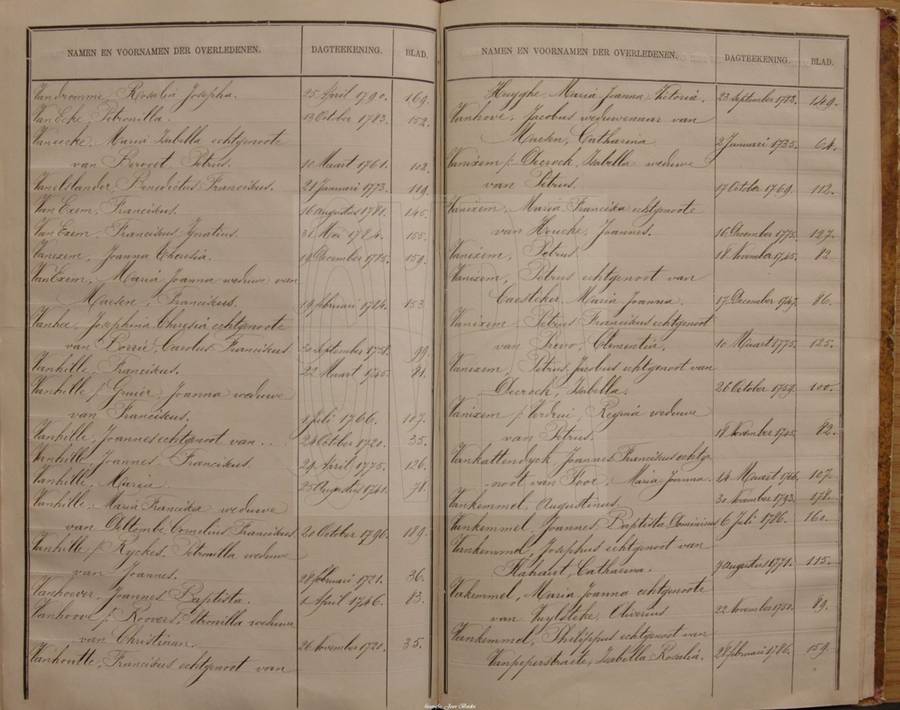 NAMEN EN VOORNAMEN DER OVERLEDENEN. DAGTEEKENING. BLAD.
Vandromme, Rosalia Josepha. 25 April 1790. 169.
Van Ecke, Petronilla. 13 October 1783. 152.
Vaneecke, Maria Isabella echtgenoote
van Petrus. 10 Maart 1761. 112.
Benedictus Franciskus. 21 Januari 1773. 119.
Van Exem, Franciskus. 16 augustus 1781. 145.
Van Exem, Franciskus Ignatius. 31 Mei 1784. 155.
Vanixem, Joanna Theresia. December 1785. 159.
Van Exem, Maria Joanna weduwe van
Maesen, Franciskus. 19 februari 1784. 153.
Vanhee, Josephina Theresia echtgenoote
van Carolus Franciskus 20 september 1758. 99.
Vanhille, Franciskus. 22 Maart 1745. 81.
Vanhille, Joanna weduwe
van Franciskus. 1 Juli 1766. 107.
Vanhille, Joannes echtgenoot van .. 24 October 1720. 35.
Vanhille, Joannes Franciskus. 29 April 1775. 126.
Vanhille, Maria. 25 Augustus 1741. 71.
Vanhille, Maria Franciska weduwe
van Cornelius Franciskus 20 October 1796. 189.
Vanhille, Ryckes, Petronilla weduwe
van Joannes. 28 februari 1721. 36.
Vanhoover, Joannes Baptista. April 1746. 83.
Vanhoove, Roovers, Petronilla weduwe
van Christiaan. 26 November 1720. 35.
Vanhoutte, Franciskus echtgenoot van
NAMEN EN VOORNAMEN DER OVERLEDENEN. DAGTEEKENING. BLAD.
Huyghe, Maria Joanna Victoria. 23 september 1782. 149.
Vanhove, Jacobus weduwenaar van
Maesen, Catharina 2 Januari 1735. 64.
Vanixem, Isabella weduwe
van Petrus. 17 October 1769. 112.
Vanixem, Maria Franciska echtgenoote
van Joannes. 16 December 1775. 127.
Vanixem, Petrus. 18 November 1745. 82.
Vanixem, Petrus echtgenoot van
Maria Joanna. 17 December 1747. 86.
Vanixem, Petrus Franciskus echtgenoot
van Clementia. 10 Maart 1775. 125.
Vanixem, Petrus Jacobus echtgenoot van
Isabella. 26 October 1759. 100.
Vanixem, Regina weduwe
van Petrus. 18 November 1745. 82.
Vankattendyck, Joannes Franciskus echtge-
noot van Maria Joanna. 14 Maart 1766. 107.
Vankemmel, Augustinus. 30 November 1793. 178.
Vankemmel, Joannes Baptista Dominicus 6 Juli 1786. 160.
Vankemmel, Josephus echtgenoot van
Catharina. 9 augustus 1771. 115.
Vakemmel, Maria Joanna echtgenoote
van Zuylstike, Oliverius 22 November 1750. 89.
Vankemmel, Philippus echtgenoot van
Vanpeperstraete, Isabella Rosalia. 28 februari 1786. 159.